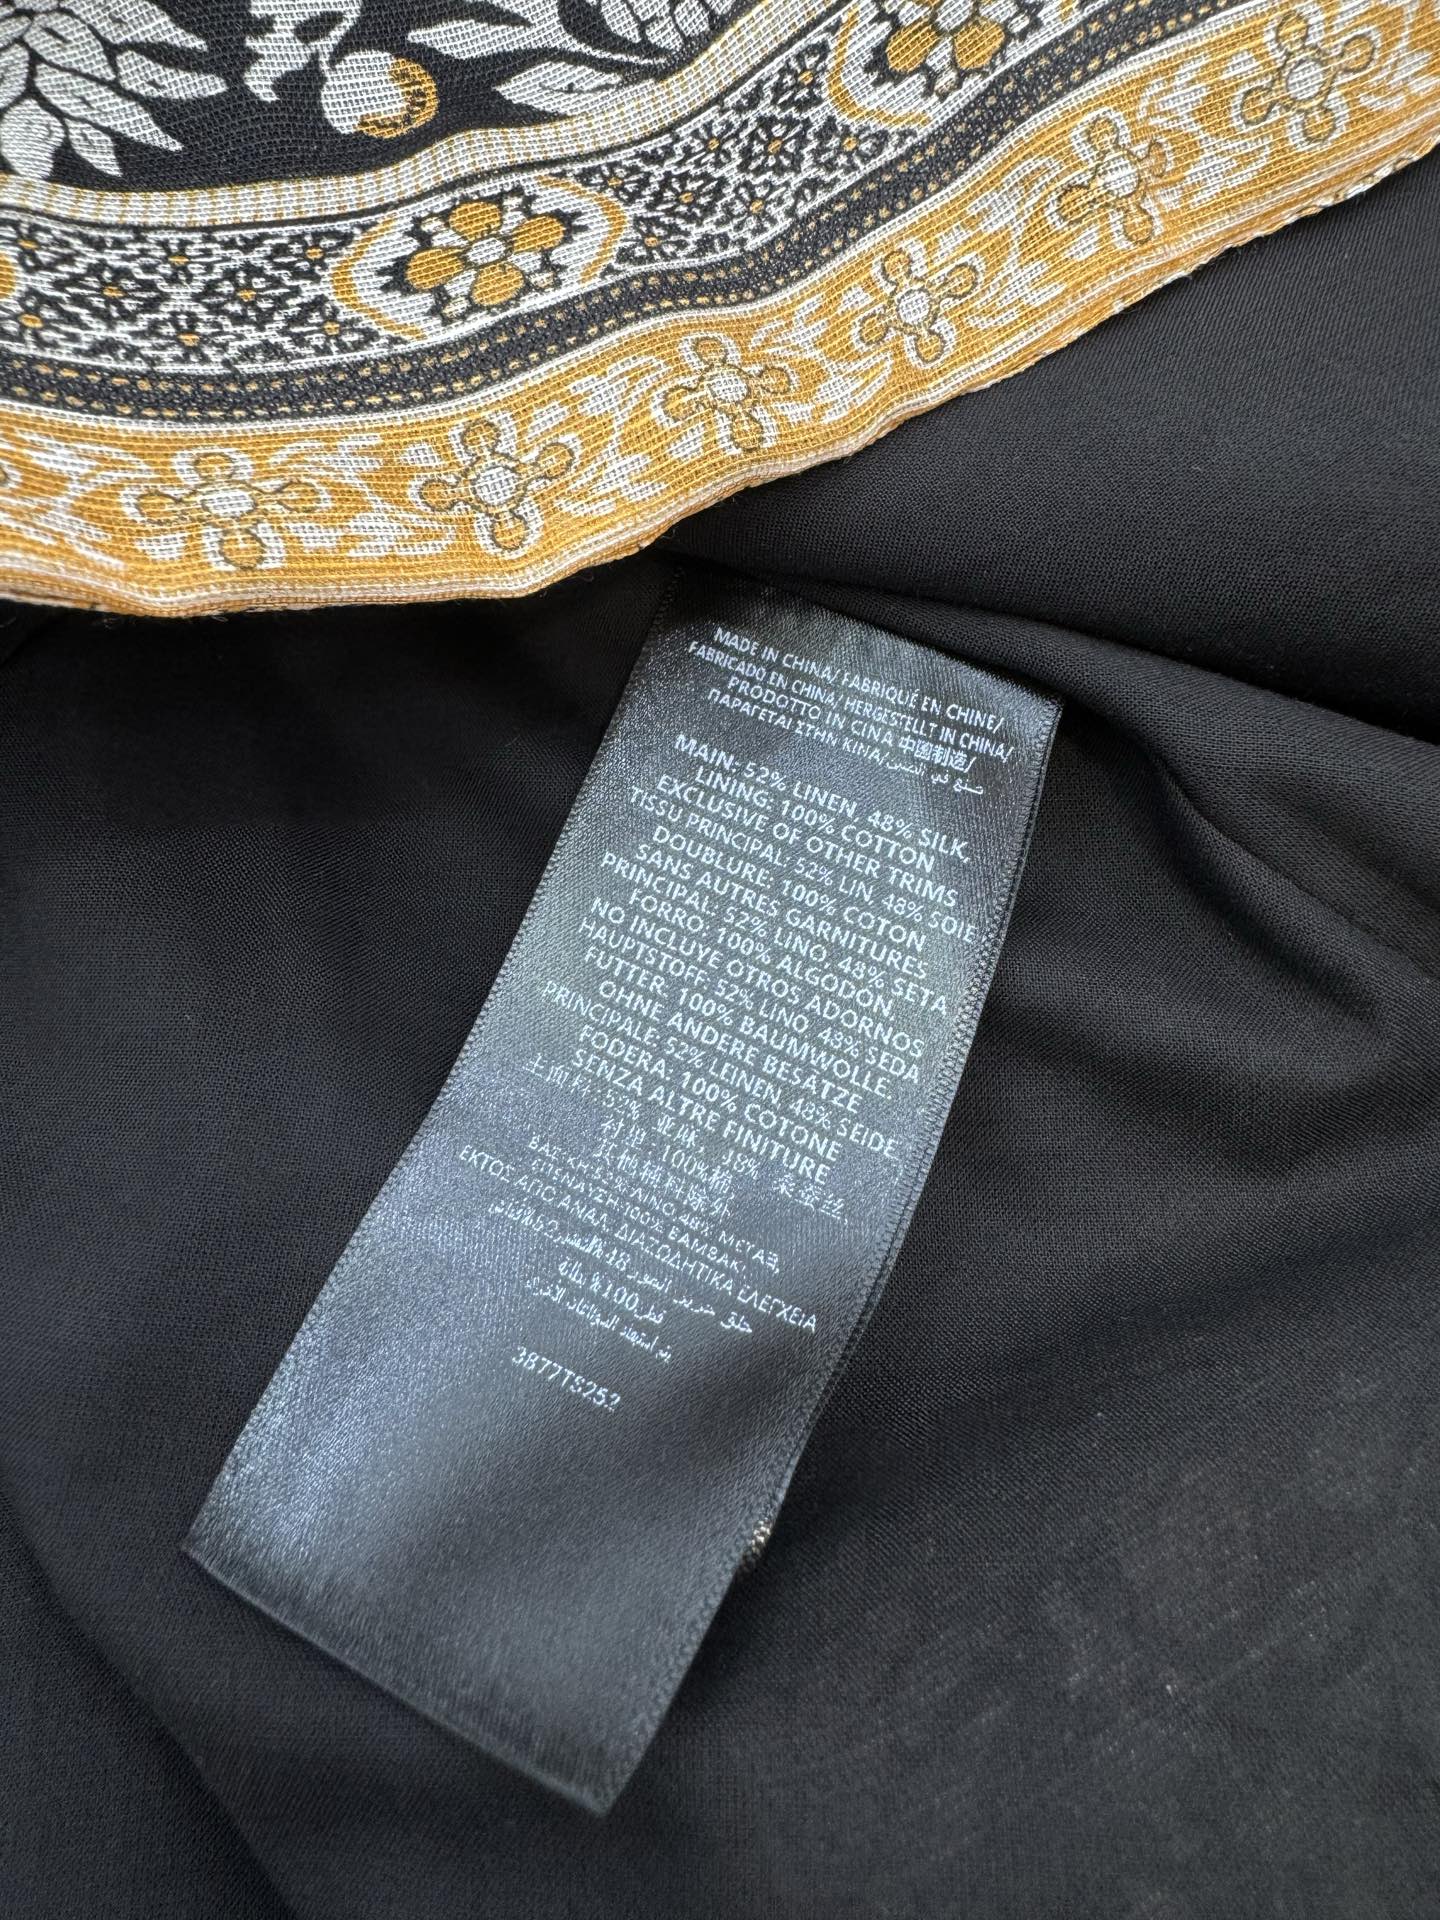 MADE IN CHINA/ FABRIQUÉ EN CHINE/
FABRICADO EN CHINA/HERGESTELLT IN CHINA/
PRODOTTO IN CINA 中国制造/
ΠΑΡΑΓΕΤΑΙ ΣΤΗΝ ΚΙΝΑ/صنع في الصين
MAIN: 52% LINEN, 48% SILK,
LINING: 100% COTTON
EXCLUSIVE OF OTHER TRIMS
TISSU PRINCIPAL: 52% LIN, 48% SOIE
DOUBLURE: 100% COTON
SANS AUTRES GARNITURES
PRINCIPAL: 52% LINO, 48% SETA
FORRO: 100% ALGODÓN,
NO INCLUYE OTROS ADORNOS
HAUPTSTOFF: 52% LINO, 48% SEDA
FUTTER: 100% BAUMWOLLE.
OHNE ANDERE BESÄTZE
PRINCIPALE: 52% LEINEN, 48% SEIDE
FODERA: 100% COTONE
SENZA ALTRE FINITURE
主面料: 52% 亚麻, 48% 桑蚕丝,
衬里: 100%棉
其他辅料除外
ΛΙΝΟ, 48% ΜΕΤΑΞΙ,
ΕΠΕΝΔΥΣΗ:100% ΒΑΜΒΑΚΙ,
ΕΚΤΟΣ ΑΠΟ
%100
3877TS252